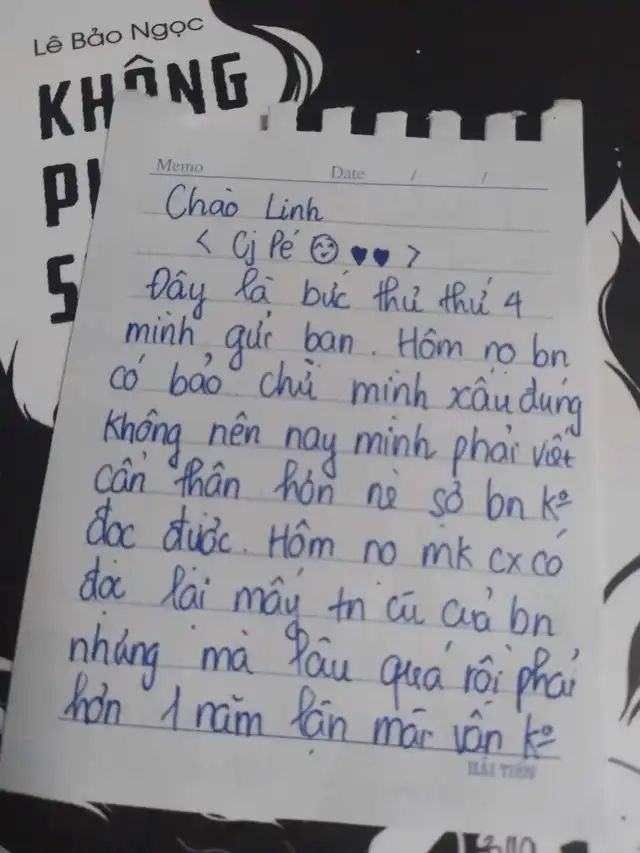 Lê Bảo Ngọc
KHÔNG
Memo Date / /
Chào Linh
< Cj Pé ☺ ♥♥ >
Đây là bức thư thứ 4
mình gửi bạn. Hôm nọ bn
có bảo chữ mình xấu đúng
không nên nay mình phải viết
cẩn thân hơn nè sợ bn kº
đọc được. Hôm nọ mk cx có
đọc lại mấy tn cũ của bn
nhưng mà lâu quá rồi phải
hơn 1 năm lận mãi vẫn kº
HẢI TIẾN